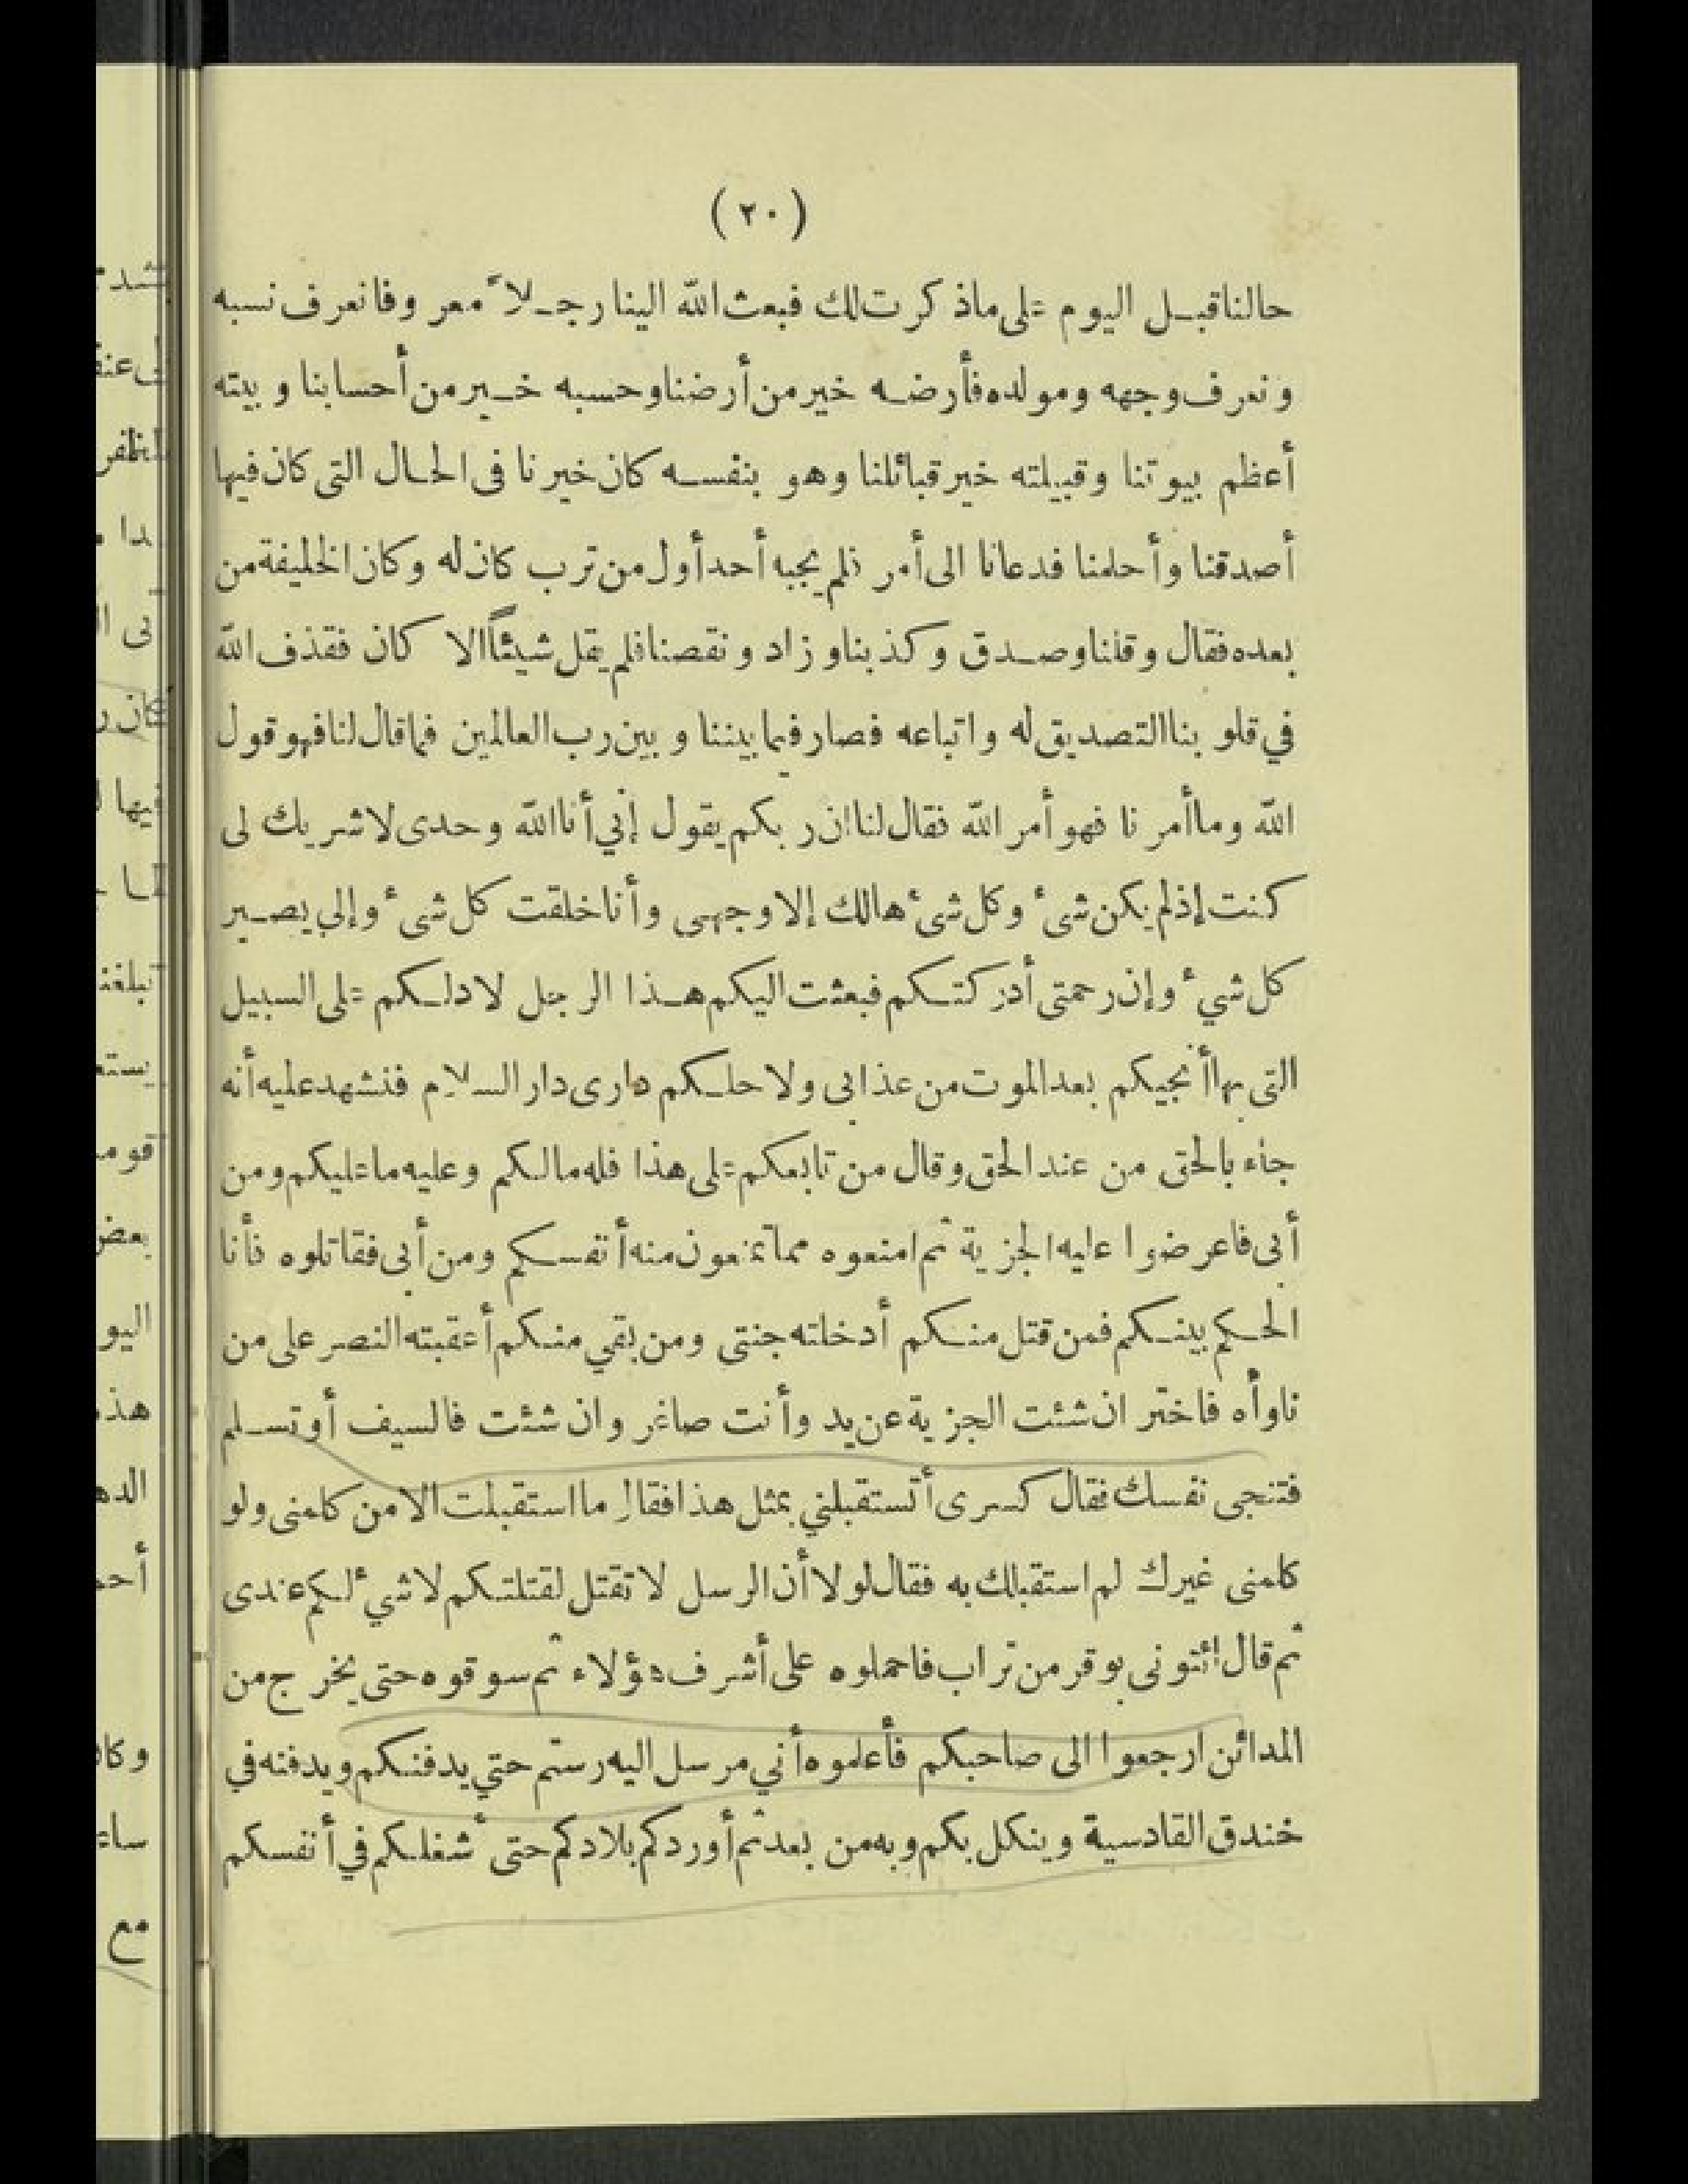 (٢٠)
حالنا قبل اليوم على ما ذكرت لك فبعث الله الينا رجلاً معروفا نعرف نسبه
ونعرف وجهه ومولده فأرضه خير من أرضنا وحسبه خير من أحسابنا وبيته
أعظم بيوتنا وقبيلته خير قبائلنا وهو بنفسه كان خيرنا فى الحال التى كان فيها
أصدقنا وأحلمنا فدعانا الى أمر فلم يجبه أحد أول من ترب كان له وكان الخليفة من
بعده فقال وقلنا وصدق وكذبنا وزاد ونقصنا فلم يقل شيئاً الا كان فقذف الله
في قلوبنا التصديق له واتباعه فصار فيما بيننا وبين رب العالمين فما قال لنا فهو قول
الله وما أمرنا فهو أمر الله فقال لنا ان ربكم يقول إني أنا الله وحدى لا شريك لى
كنت إذ لم يكن شىء وكل شىء هالك إلا وجهى وأنا خلقت كل شىء وإلي يصير
كل شيء وإن رحمتى أدركتكم فبعثت اليكم هذا الرجل لادلكم على السبيل
التى بها أنجيكم بعد الموت من عذابى ولاحلكم دارى دار السلام فنشهد عليه أنه
جاء بالحق من عند الحق وقال من تابعكم على هذا فله مالكم وعليه ما عليكم ومن
أبى فاعرضوا عليه الجزية ثم امنعوه مما تمنعون منه أنفسكم ومن أبى فقاتلوه فأنا
الحكم بينكم فمن قتل منكم أدخلته جنتى ومن بقي منكم أعقبته النصر على من
ناوأه فاختر ان شئت الجزية عن يد وأنت صاغر وان شئت فالسيف أو تسلم
فتنجى نفسك فقال كسرى أتستقبلني بمثل هذا فقال ما استقبلت الا من كلمنى ولو
كلمنى غيرك لم استقبلك به فقال لولا أن الرسل لا تقتل لقتلتكم لا شيء لكم عندى
ثم قال ائتونى بوقر من تراب فاحملوه على أشرف هؤلاء ثم سوقوه حتى يخرج من
المدائن ارجعوا الى صاحبكم فأعلموه أني مرسل اليه رستم حتي يدفنكم ويدفنه في
خندق القادسية وينكل بكم وبه من بعد ثم أوردكم بلادكم حتى أشغلكم في أنفسكم